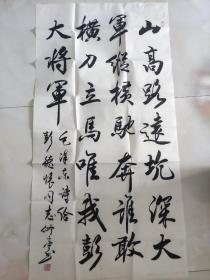 山高路遠坑深大
軍縱横馳奔誰敢
横刀立馬唯我彭
大將軍 毛澤東詩給
彭德懷同志